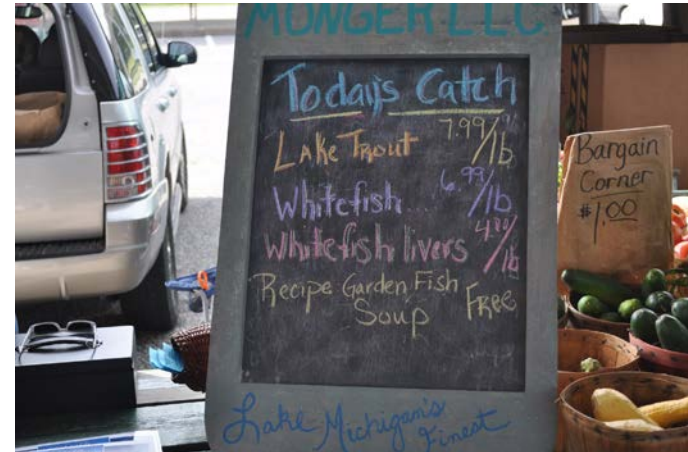 MONGER LLC
Today's Catch
Lake Trout 7.99/lb
Whitefish.... 6.99/lb
Whitefish livers 4.99/lb
Recipe Garden Fish Free
Soup
Lake Michigan's
Finest
Bargain
Corner
$1.00